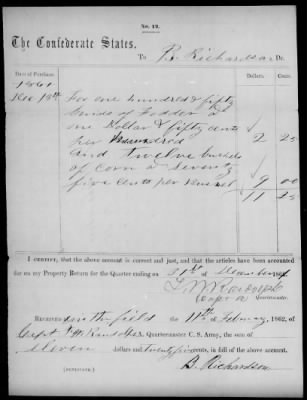 No. 12.
The Confederate States,
To B. Richardson Dr.
Date of Purchase. Dollars. Cents.
1861
Dec 13th For one hundred & fifty
bunds of Fodder @
one Dollar & fifty cents
per hundred 2 25
and twelve bushels
of corn @ Seventy
five cents per bushel 9 00
11 25
I CERTIFY, that the above account is correct and just, and that the articles have been accounted
for on my Property Return for the Quarter ending on 31st of December 1861
Quartermaster.
RECEIVED in the field the 11th of February, 1862, of
Capt A. Quartermaster C. S. Army, the sum of
Eleven dollars and twenty five cents, in full of the above account.
(DUPLICATE.) B. Richardson